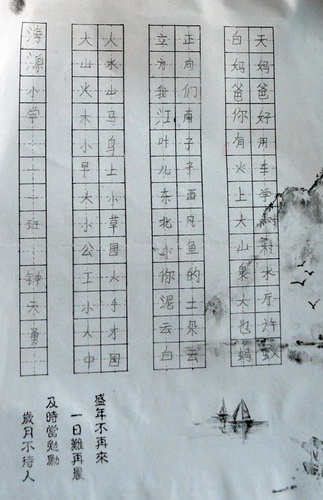 天妈爸好用车学水厅许蚁
白妈爸你有火上大山果大也蚂
正向们南子子西风鱼的土朵云
立方我江叶儿东北小你泥云白
人水山马鸟上小草园火手才国
大山火木小早大小公工小人中
海源小学一一班钟天勇
盛年不再來
一日難再晨
及時當勉勵
歲月不待人